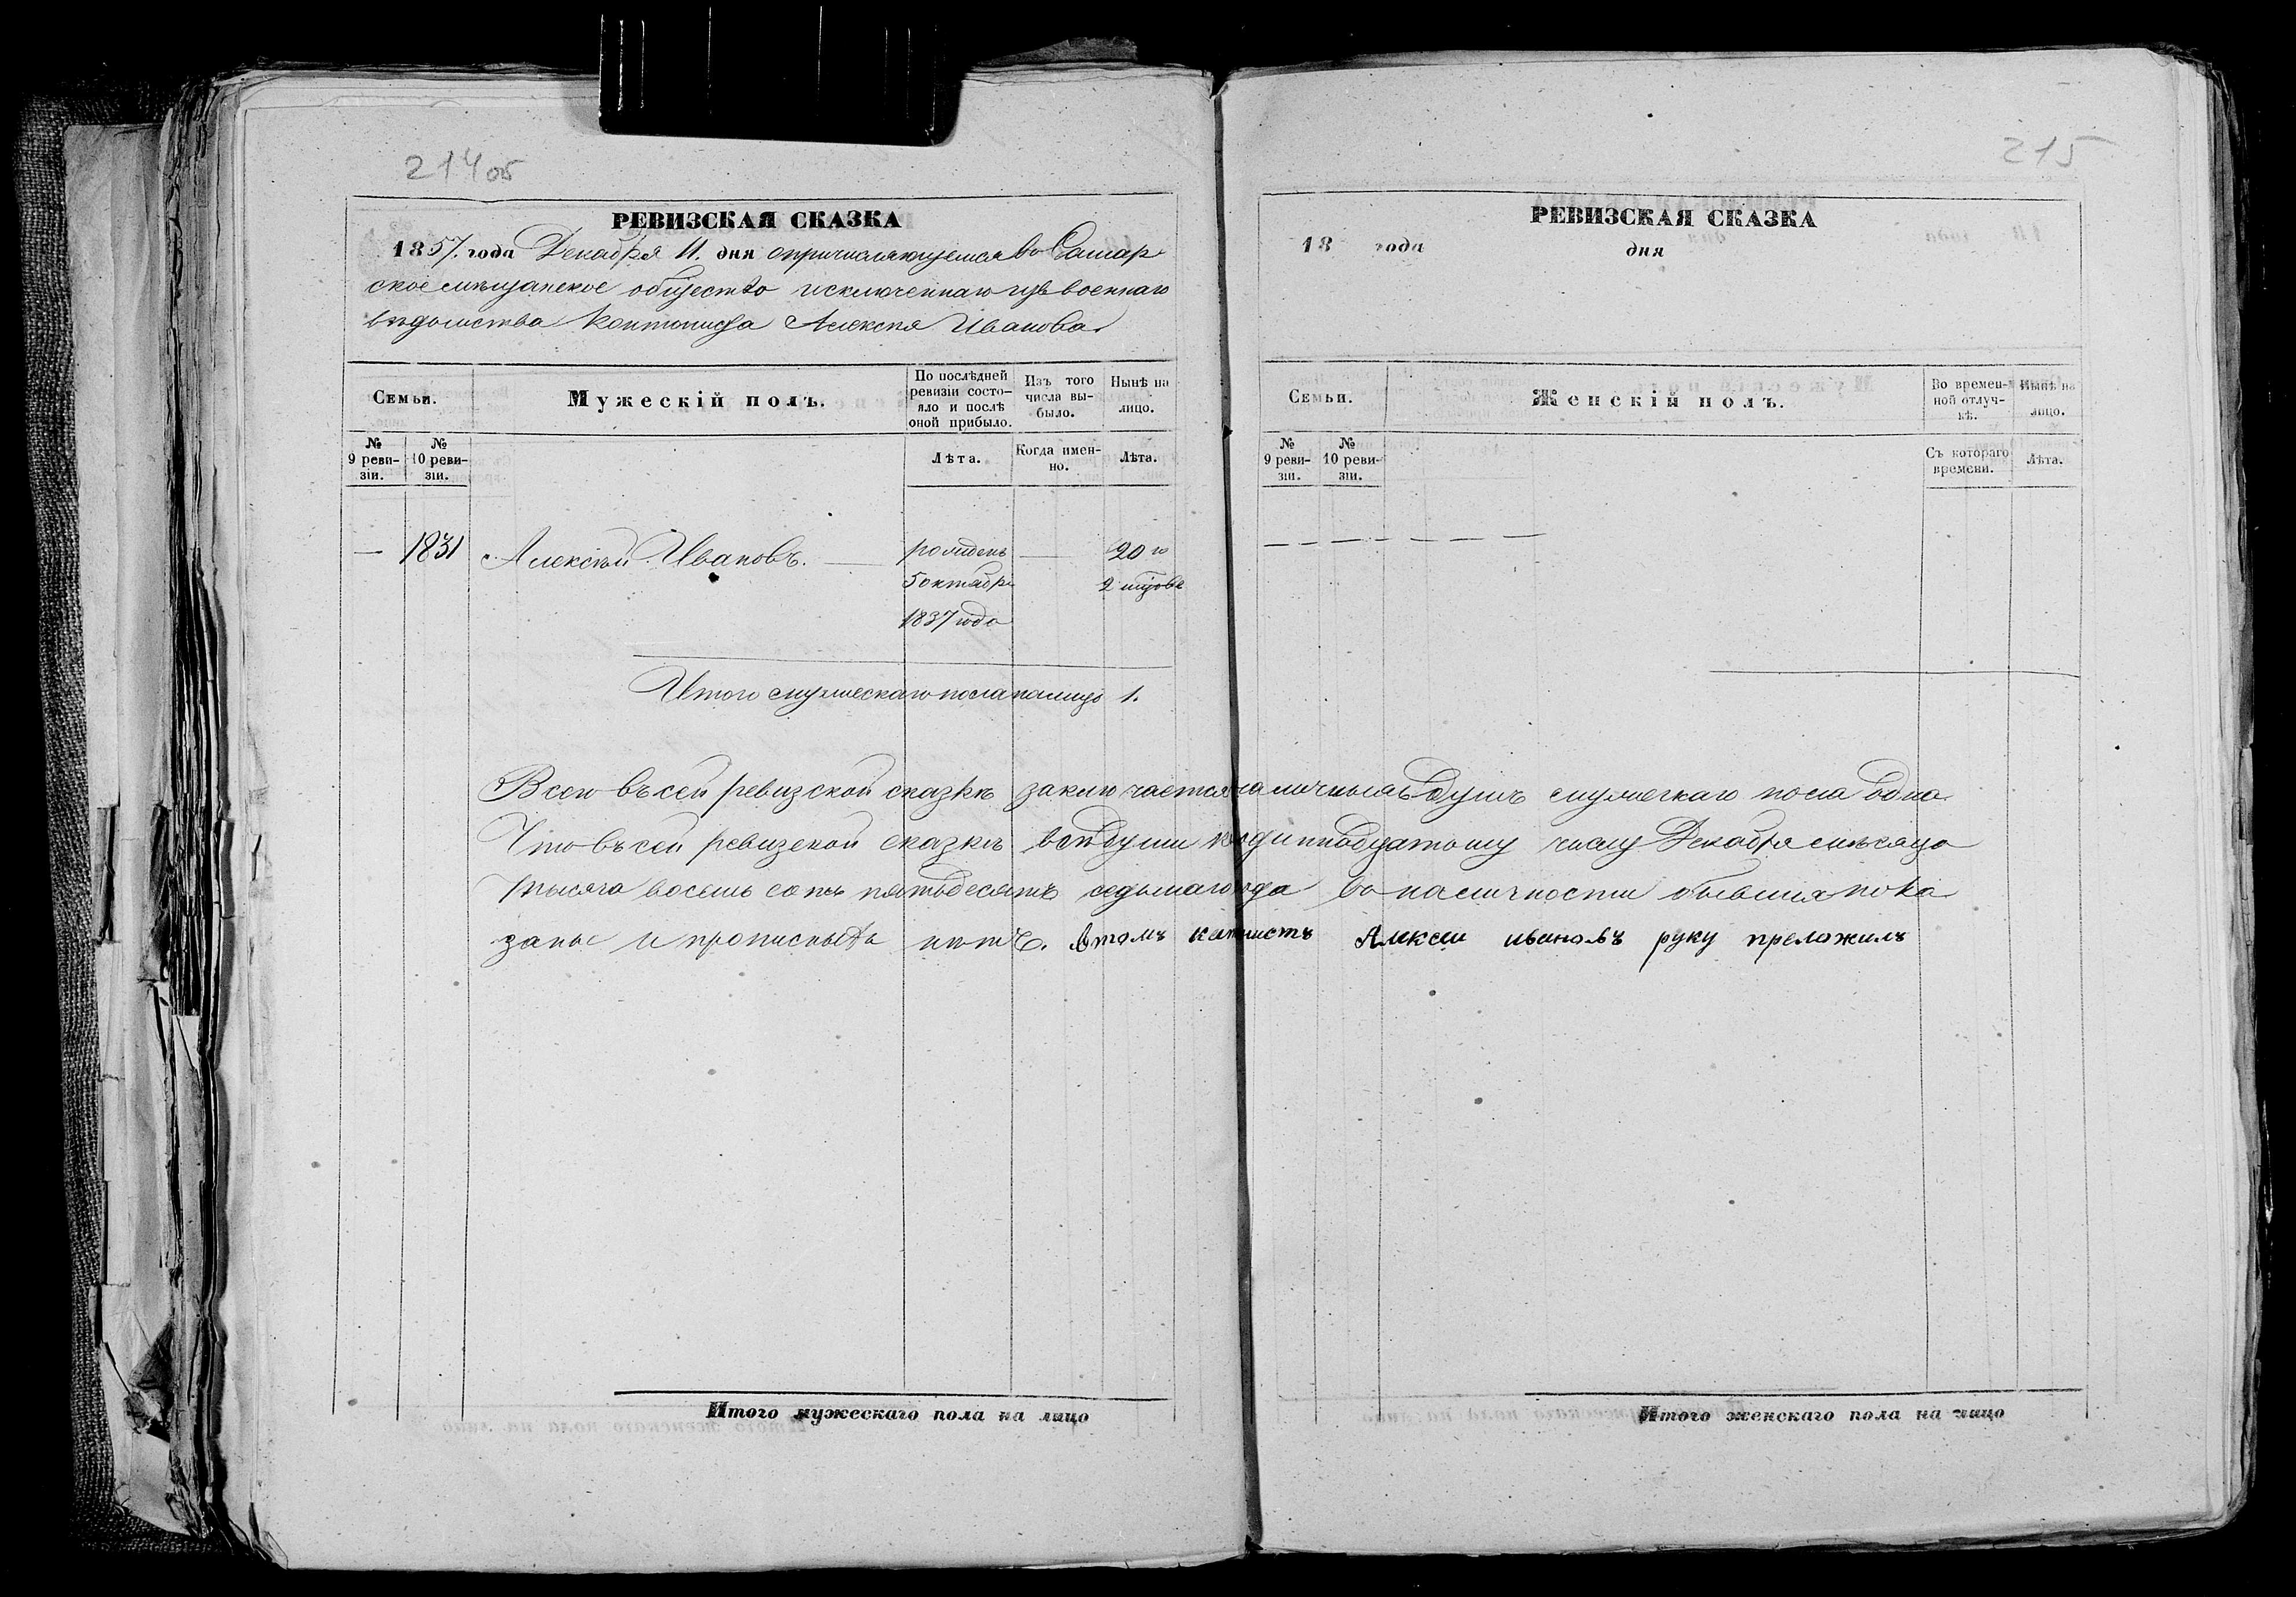 214об
РЕВИЗСКАЯ СКАЗКА
1857. года Декабря 11. дня опричисляющемся во Самар
ское мещанское общество исключеннаго изъ военнаго
ведомства Кантониста Алексея Иванова.
Семьи.
Мужескій полъ.
По послѣдней ревизіи состо-яло и послѣ оной прибыло.
Изъ того числа вы-было.
Нынѣ на лицо.
№ 9 реви-зіи.
№ 10 реви-зіи.
Лѣта.
Когда имен-но.
Лѣта.
— 1831 Алексѣй Ивановъ. — рожденъ — 20 ю
5 октября 2 м͠цовъ
1837 года
Итого мужескаго пола налицо 1.
Всего въ сей ревизской сказкѣ заключается наличныхъ душъ мужескаго пола одна
Что въ сей ревизской сказкѣ всѣ души кодиннадцатому числу Декабря мѣсяца
тысяча восемь сотъ пятьдесятъ седьмаго года во наличности бывшия пока
заны и прописныхъ нѣтъ. Втомъ кантонистъ Алексеи ивановъ руку преложилъ
Итого мужескаго пола на лицо
215
РЕВИЗСКАЯ СКАЗКА
18 года дня
Семьи.
Женскій полъ.
Во времен-ной отлуч-кѣ.
Нынѣ на лицо.
№ 9 реви-зіи.
№ 10 реви-зіи.
Съ котораго времени.
Лѣта.
— — — — — — —
Итого женскаго пола на лицо